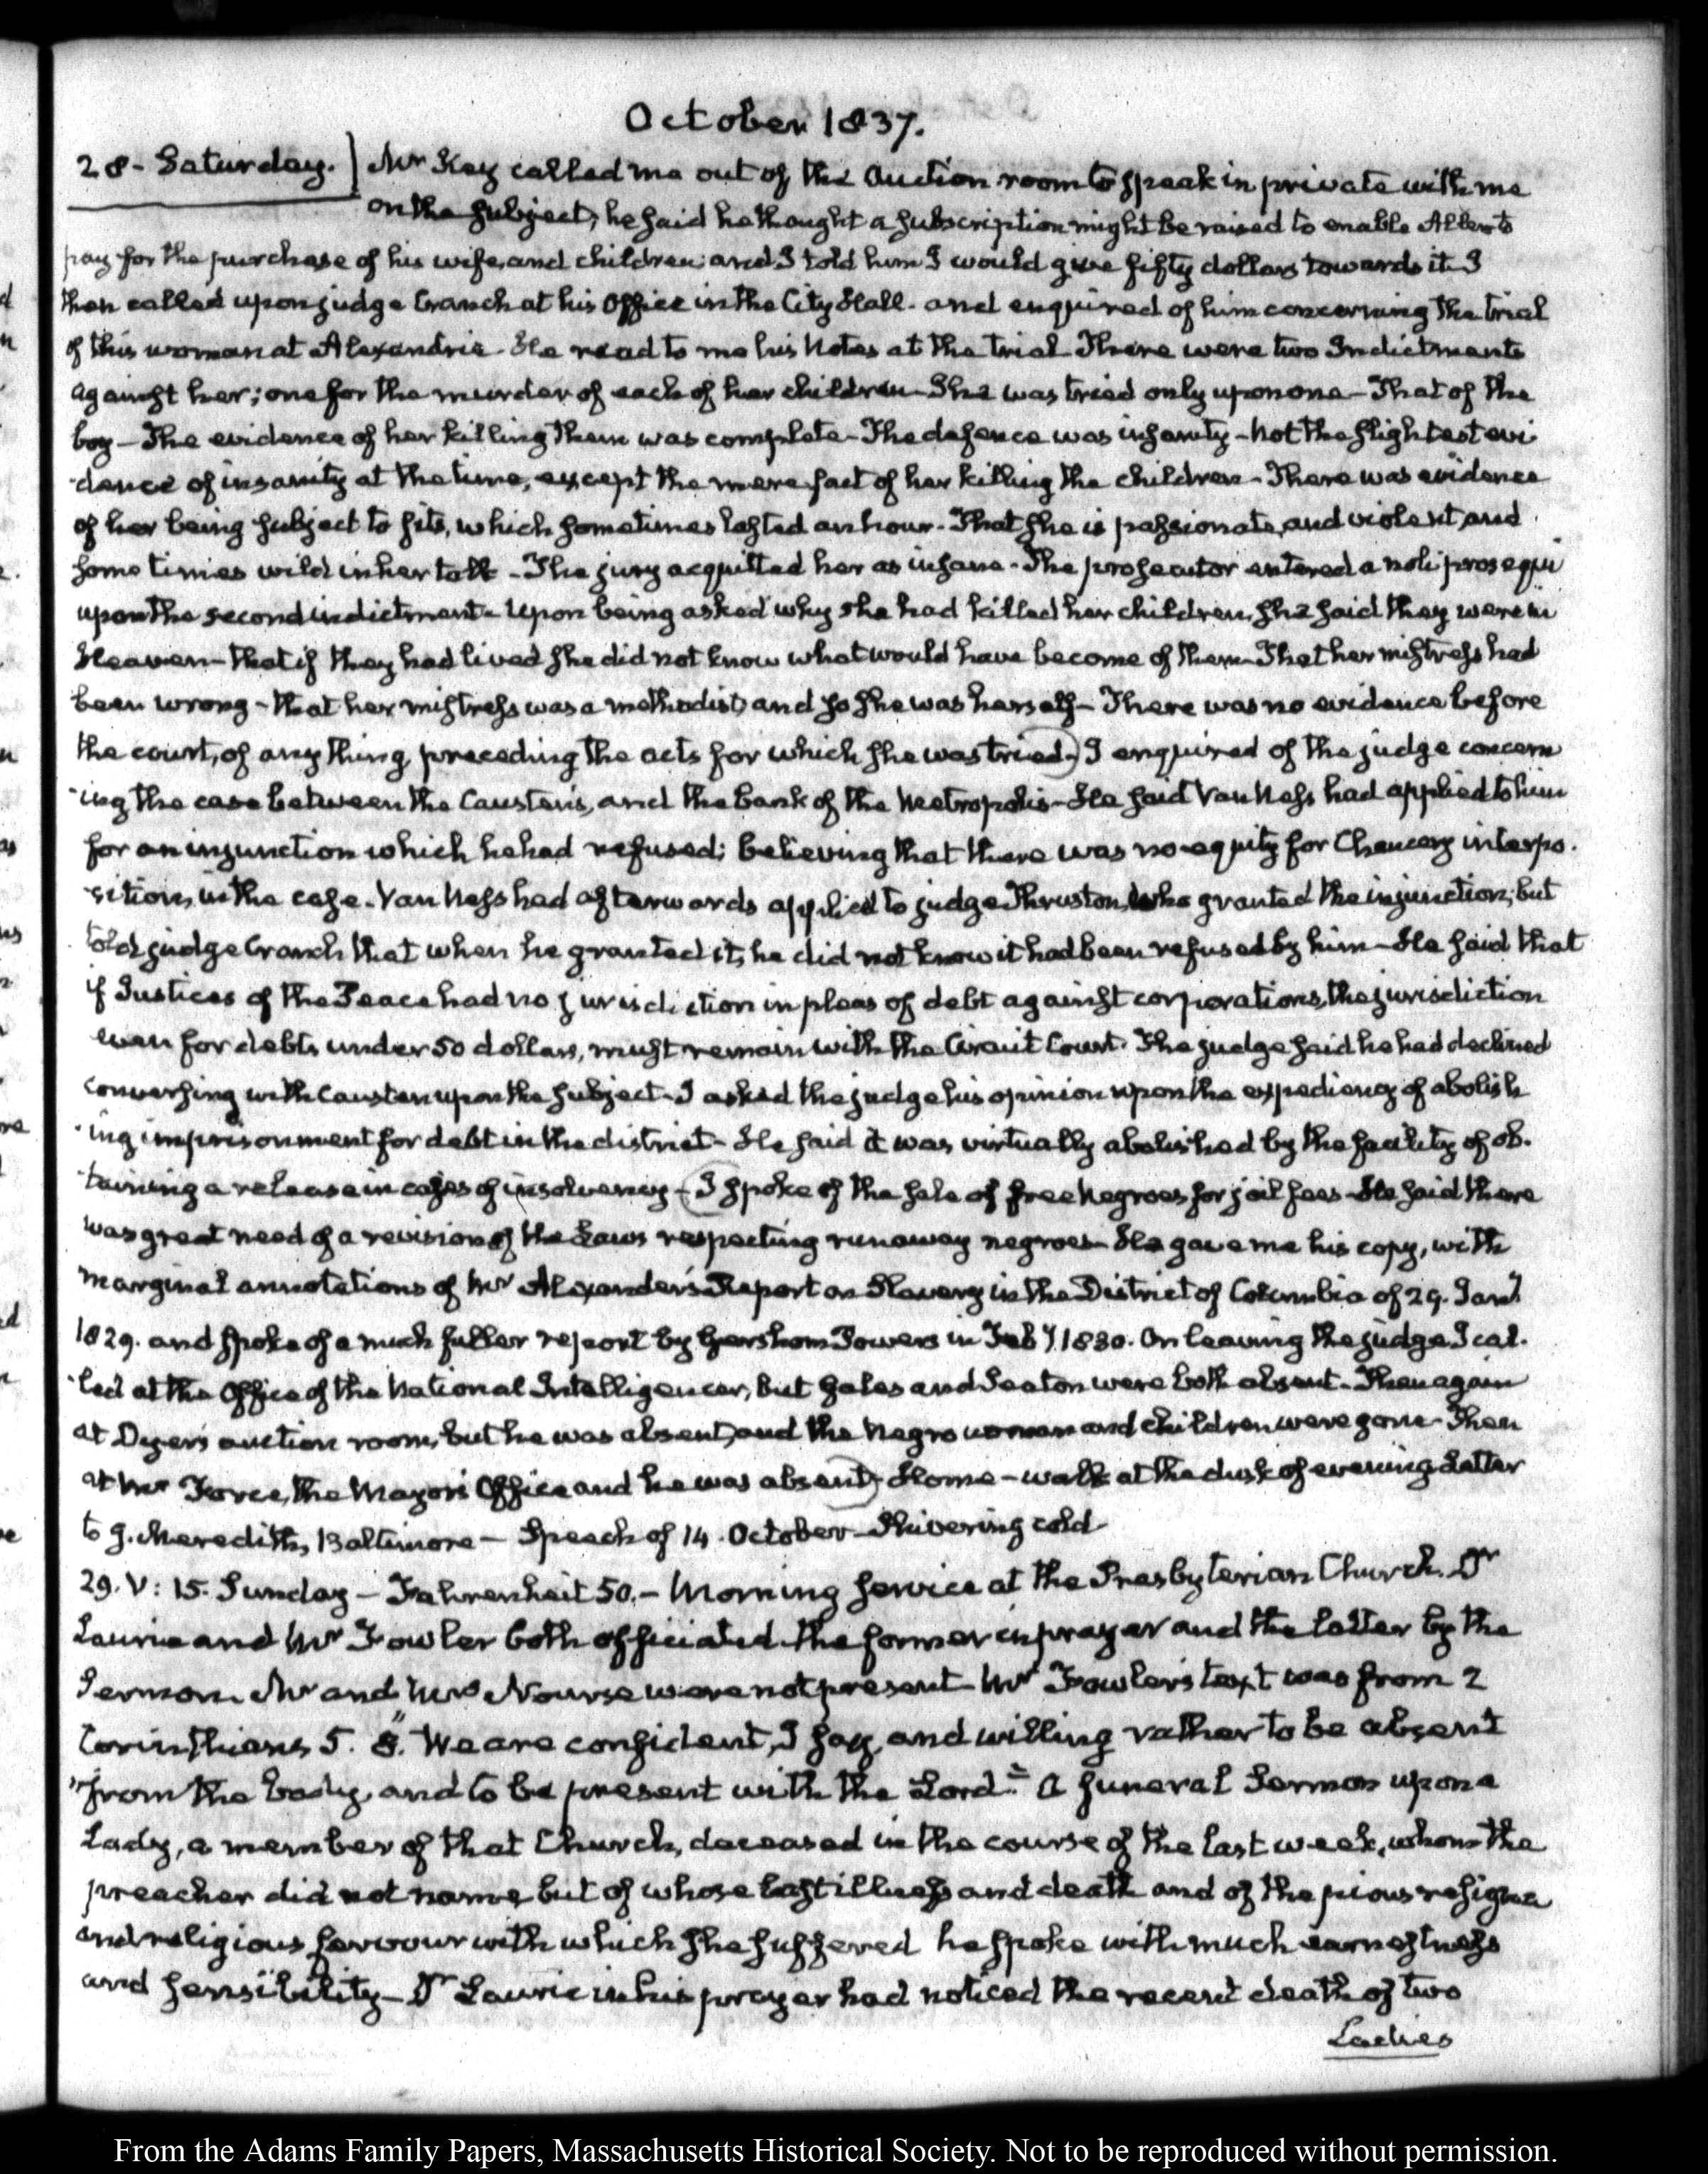 October 1837.
28 - Saturday. Mr Key called me out of the Auction room to speak in private with me
on the subject, he said he thought a subscription might be raised to enable Allen to
pay for the purchase of his wife, and children and I told him I would give fifty dollars towards it. I
then called upon judge Cranch at his Office in the City Hall - and enquired of him concerning the trial
of this woman at Alexandria - He read to me his Notes at the trial There were two Indictments
against her; one for the murder of each of her children - She was tried only upon one - That of the
boy - The evidence of her killing them was complete - The defence was insanity - Not the slightest evi
-dence of insanity at the time, except the mere fact of her killing the children - There was evidence
of her being subject to fits, which sometimes lasted an hour - That she is passionate, and violent, and
sometimes wild in her talk - The jury acquitted her as insane - The prosecutor entered a noli prosequi
upon the second indictment - Upon being asked why she had killed her children, she said they were in
Heaven - that if they had lived she did not know what would have become of them - That her mistress had
been wrong - that her mistress was a methodist, and so she was herself - There was no evidence before
the court, of any thing preceding the acts for which she was tried - I enquired of the judge concern
-ing the case between the Causten's, and the bank of the Metropolis - He said Van Ness had applied to him
for an injunction which he had refused; believing that there was no equity for Chancery interpo-
-sition, in the case - Van Ness had afterwards applied to judge Thruston, who granted the injunction; but
told judge Cranch that when he granted it, he did not know it had been refused by him - He said that
if Justices of the Peace had no jurisdiction in pleas of debt against corporations, the jurisdiction
even for debts under 50 dollars, must remain with the Circuit Court. The judge said he had declined
conversing with Causten upon the subject - I asked the judge his opinion upon the expediency of abolish
-ing imprisonment for debt in the district - He said it was virtually abolished by the facility of ob-
-taining a release in cases of insolvency - I spoke of the sale of free Negroes for jail fees - He said there
was great need of a revision of the Laws respecting runaway negroes - He gave me his copy, with
marginal annotations of Mr Alexander's Report on Slavery in the District of Columbia of 29. Jany
1829. and spoke of a much fuller report by Gershom Powers in Feby 1830. On leaving the judge I cal-
-led at the Office of the National Intelligencer, but Gales and Seaton were both absent - Then again
at Dyer's auction room, but he was absent, and the Negro woman and children were gone - Then
at Mr Force, the Mayor's Office and he was absent - Home - walk at the dusk of evening Letter
to J. Meredith, Baltimore - Speech of 14. October - Shivering cold -
29. V: 15. Sunday - Fahrenheit 50. - Morning service at the Presbyterian Church. Dr
Laurie and Mr Fowler both officiated the former in prayer and the latter by the
Sermon. Mr and Mrs Nourse were not present - Mr Fowler's text was from 2
Corinthians 5. 8. "We are confident, I say, and willing rather to be absent
"from the body, and to be present with the Lord" - A funeral Sermon upon a
Lady, a member of that Church, deceased in the course of the last week, whom the
preacher did not name, but of whose last illness and death and of the pious resigna
and religious fervour with which she suffered he spoke with much earnestness
and sensibility - Dr Laurie in his prayer had noticed the recent death of two
Ladies
From the Adams Family Papers, Massachusetts Historical Society. Not to be reproduced without permission.